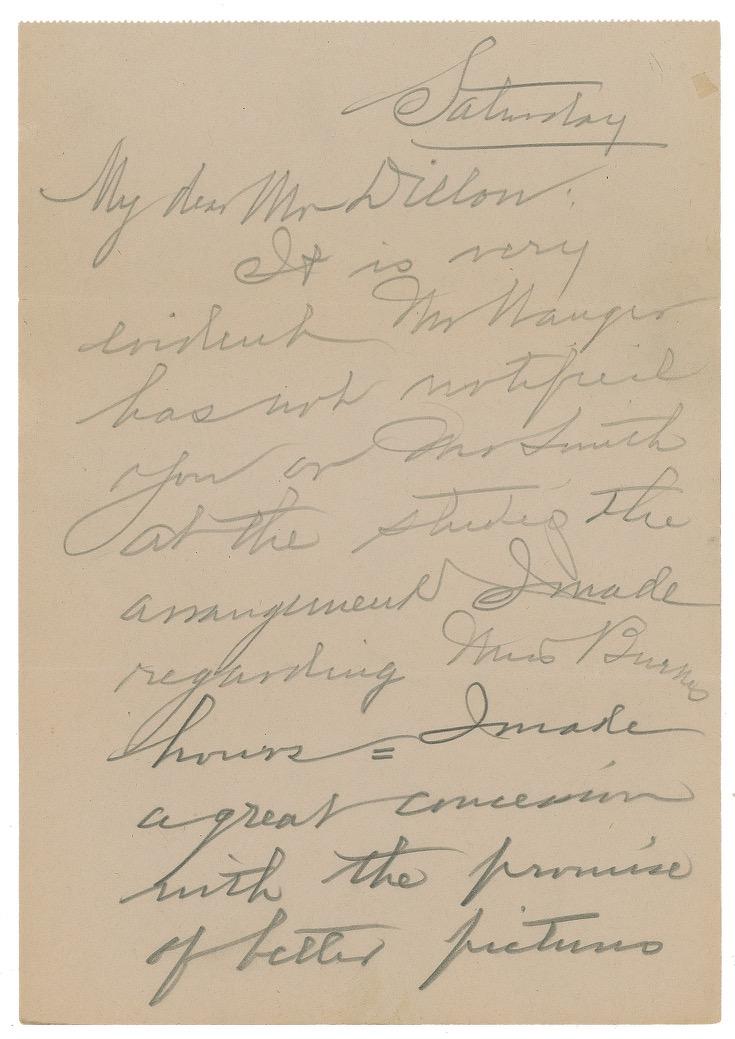 Saturday
My dear Mr Dillon:
It is very
evident Mr
has not notified
you or Mr Smith
at the studio the
arrangement I made
regarding Miss Burnes
hours = I made
a great concession
with the promise
of better pictures